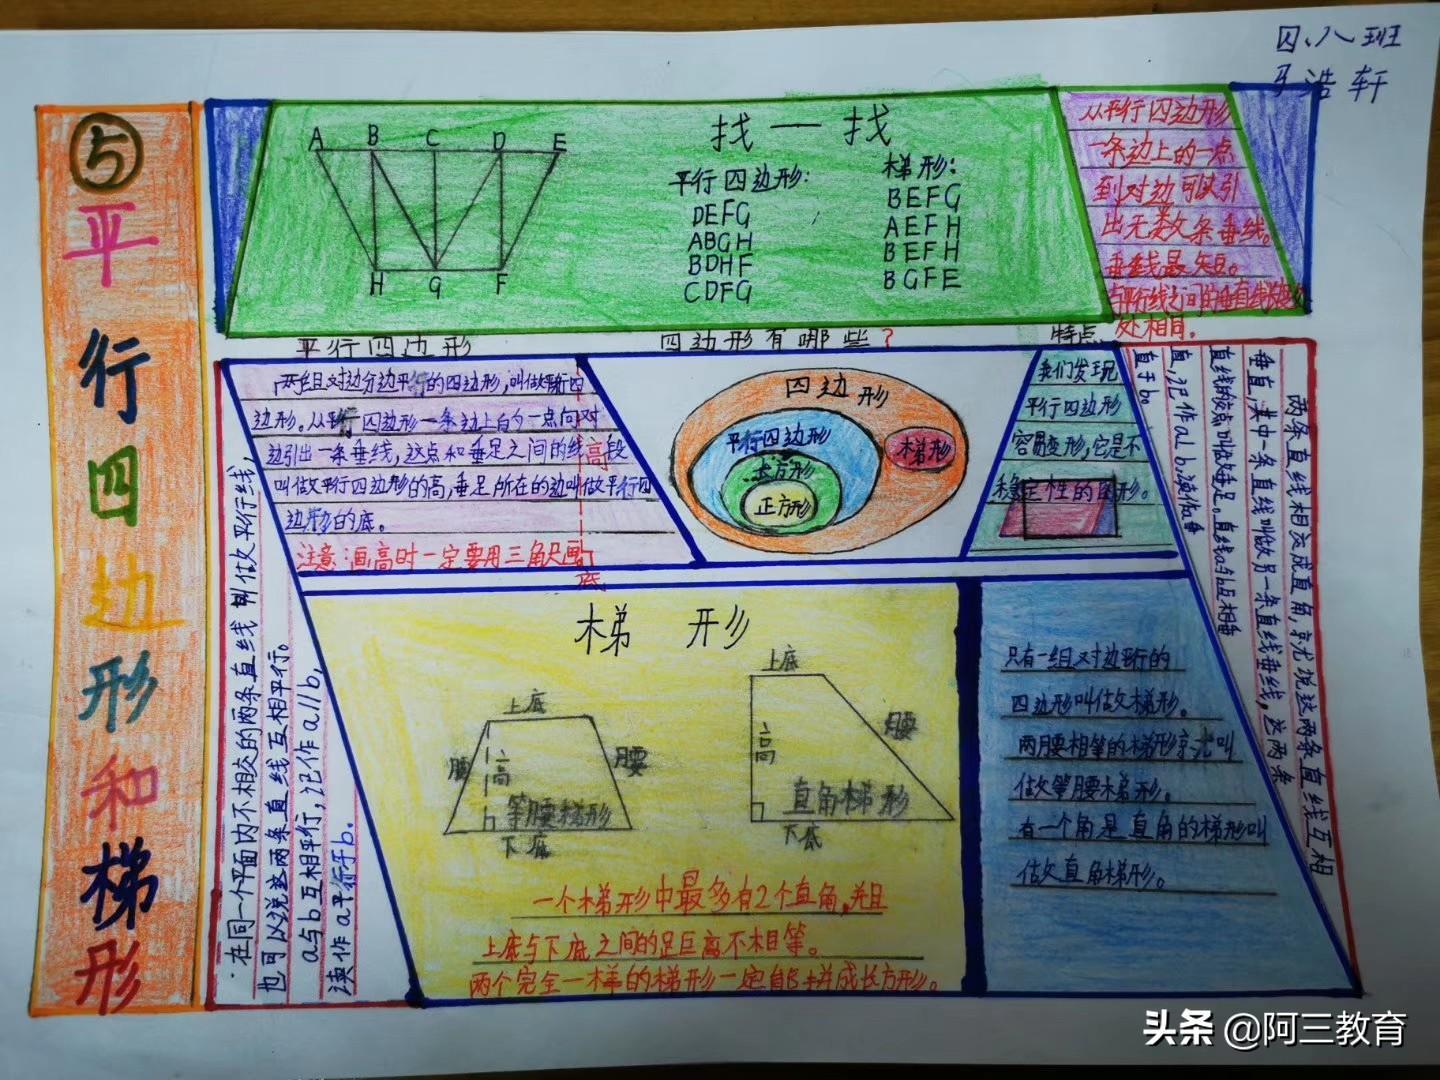 四、八班
马浩轩
⑤平行四边形和梯形
A B C D E
H G F
找一找
平行四边形：
DEFG
ABGH
BDHF
CDFG
梯形：
BEFG
AEFH
BEFH
BGFE
从平行四边形
一条边上的一点
到对边可以引
出无数条垂线。
垂线最短。
与平行线之间的垂直线长度
处处相同。
平行四边形
两组对边分边平行的四边形，叫做平行四
边形。从平行四边形一条边上的一点向对
边引出一条垂线，这点和垂足之间的线段
叫做平行四边形的高，垂足所在的边叫做平行四
边形的底。
注意：画高时一定要用三角尺画
高
底
四边形有哪些？
四边形
平行四边形
长方形
正方形
梯形
特点
我们发现
平行四边形
容易变形，它是不
稳定性的图形。
在同一个平面内不相交的两条直线叫做平行线，
也可以说这两条直线互相平行。
a与b互相平行，记作a//b，
读作a平行于b。
两条直线相交成直角，就说这两条直线互相
垂直，其中一条直线叫做另一条直线垂线，这两条
直线的交点叫做垂足。直线a与b互相垂
直，记作a⊥b读作a垂
直于b
梯形
上底
腰
高
腰
等腰梯形
下底
上底
腰
高
直角梯形
下底
一个梯形中最多有2个直角，并且
上底与下底之间的距离不相等。
两个完全一样的梯形一定能拼成长方形。
只有一组对边平行的
四边形叫做梯形。
两腰相等的梯形就叫
做等腰梯形。
有一个角是直角的梯形叫
做直角梯形。
头条 @阿三教育